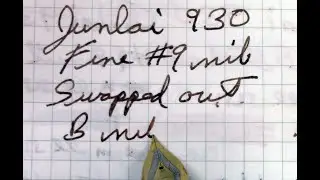 Junlai 930
Fine #9 nib
Swapped out
B nib